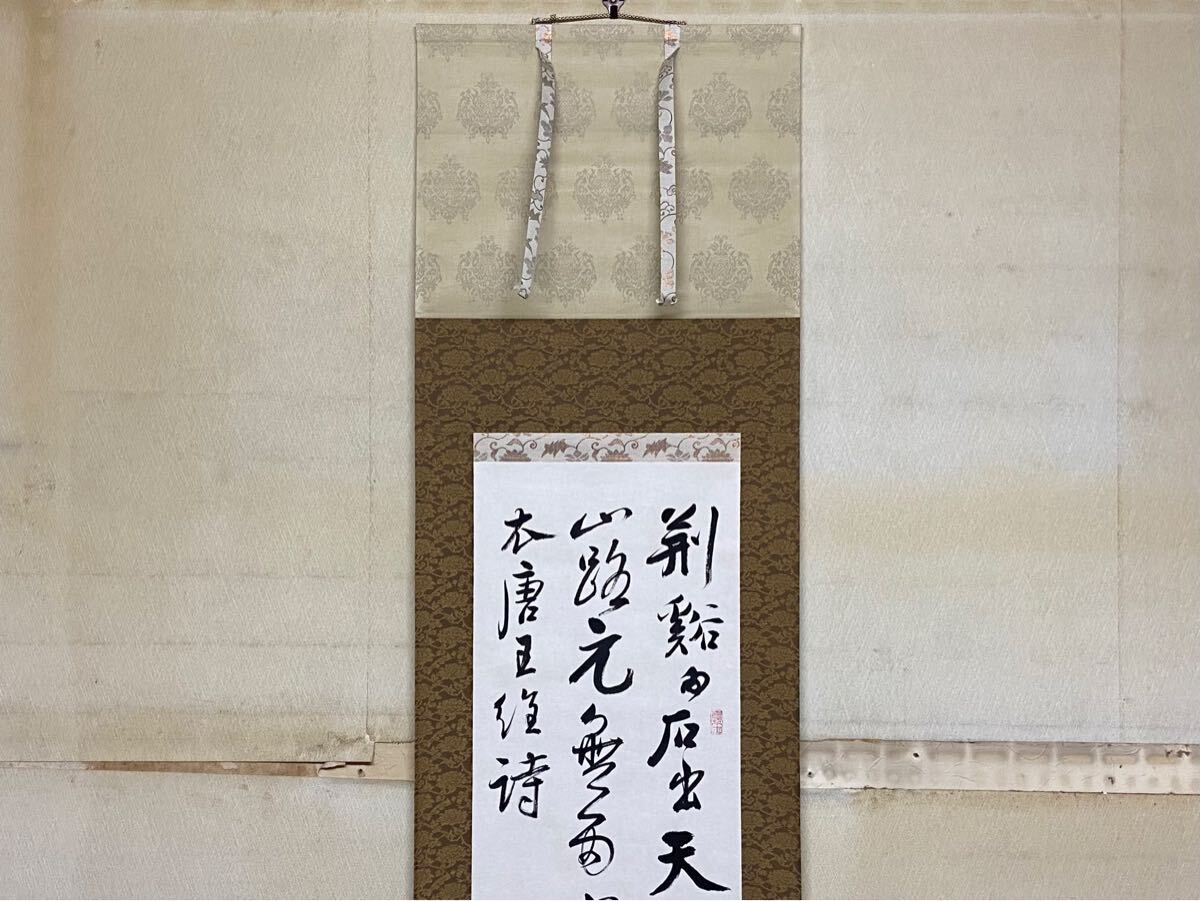 荊谿白石出天
山路元無雨
衣唐王維詩